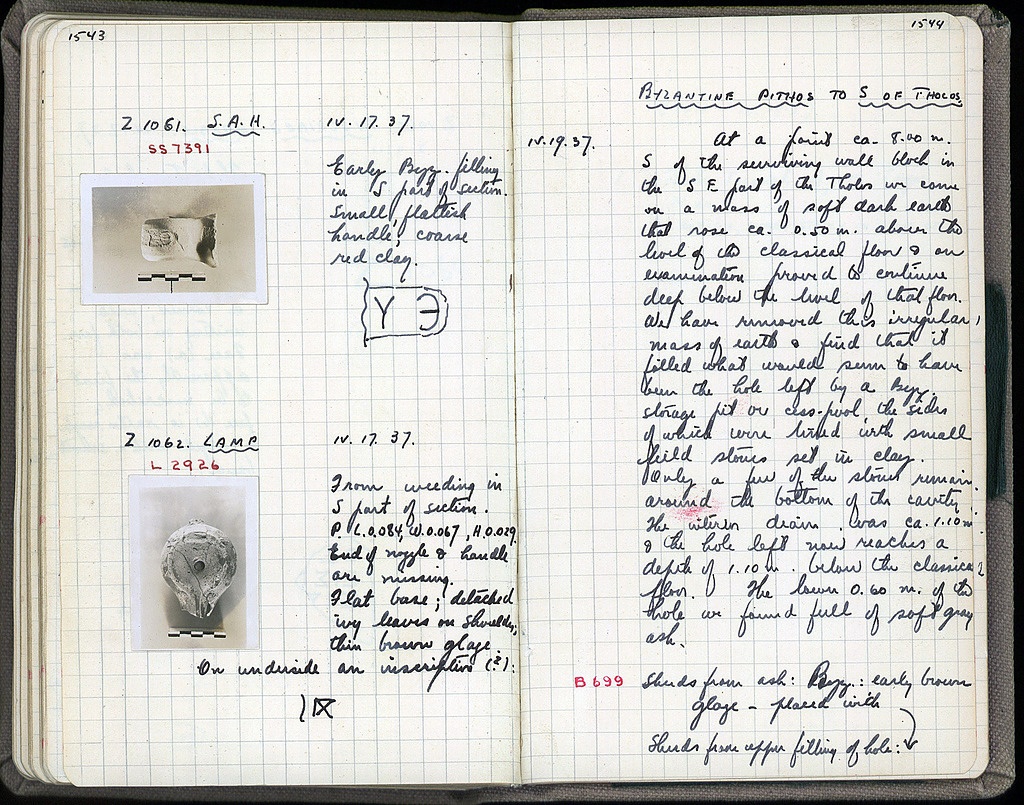 1543
Z 1061. S.A.H. IV. 17. 37.
SS 7391
Early Byz. filling
in S part of section.
Small, flattish
handle; coarse
red clay.
Y Э
Z 1062. LAMP IV. 17. 37.
L 2926
From weeding in
S part of section.
P. L. 0.084, W. 0.067, H. 0.029
End of nozzle & handle
are missing.
Flat base; detached
ivy leaves on shoulder;
thin brown glaze.
On underside an inscription (?):
1544
BYZANTINE PITHOS TO S OF THOLOS
IV. 19. 37. At a point ca. 8.00 m.
S of the surviving wall block in
the S E part of the Tholos we come
on a mass of soft dark earth
that rose ca. 0.50 m. above the
level of the classical floor & on
examination proved to continue
deep below the level of that floor.
We have removed this irregular
mass of earth & find that it
filled what would seem to have
been the hole left by a Byz.
storage pit or cess-pool, the sides
of which were lined with small
field stones set in clay.
Only a few of the stones remain
around the bottom of the cavity.
The interior diam. was ca. 1.10 m.
& the hole left now reaches a
depth of 1.10 m. below the classical
floor. The lower 0.60 m. of the
hole we found full of soft gray
ash.
B 699 Sherds from ash: Byz.: early brown
glaze - placed with
Sherds from upper filling of hole: